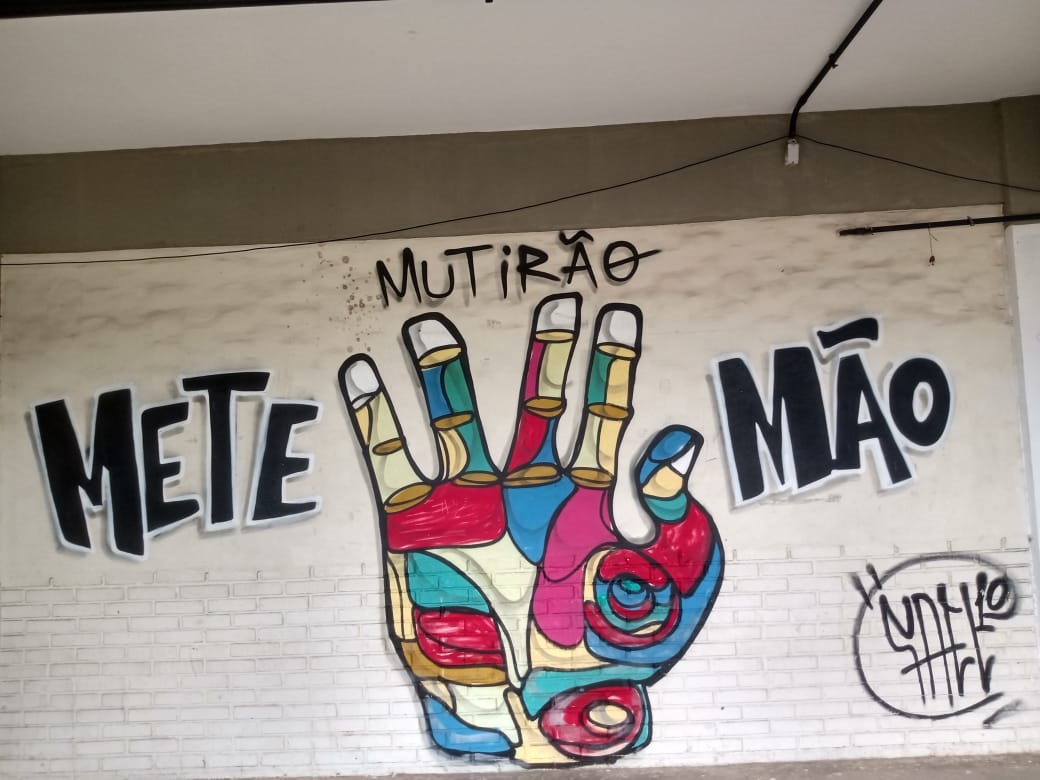 MUTiRÃO
METE MÃO